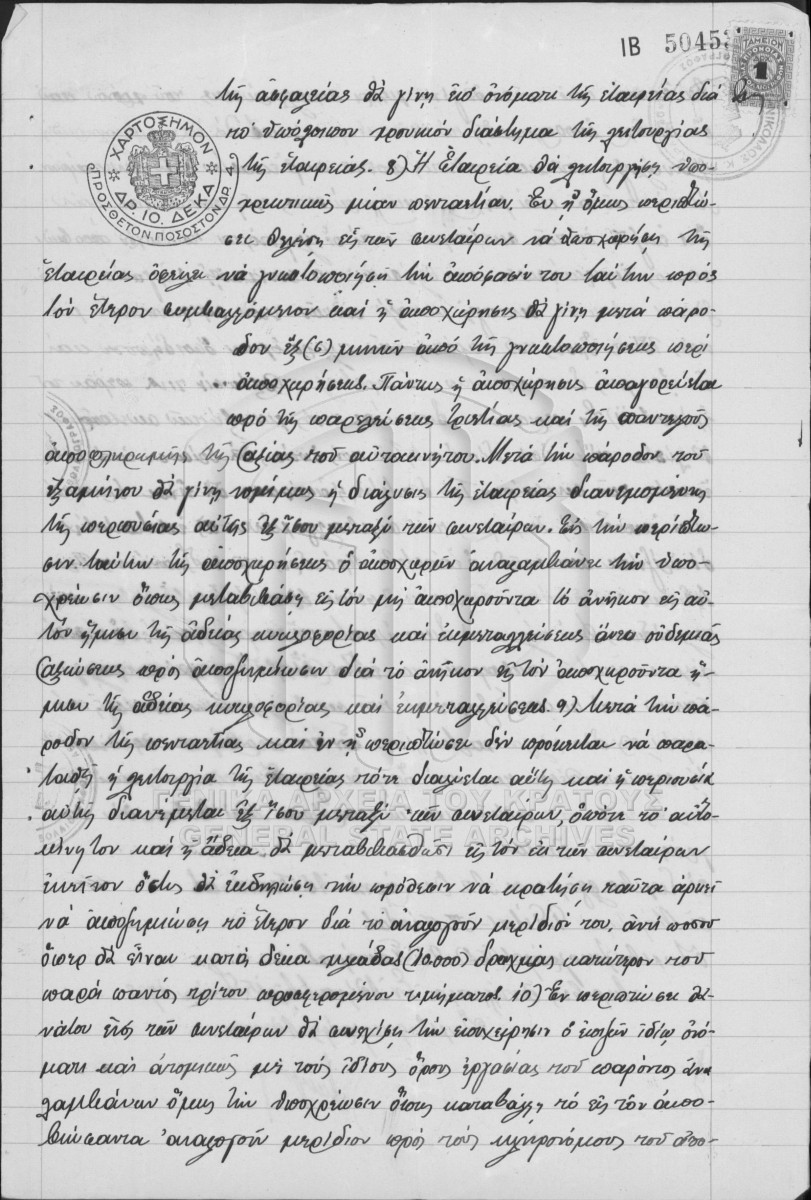 ΙΒ 50453
ΤΑΜΕΙΟΝ ΝΟΜΙΚΩΝ
1
ΧΑΡΤΟΣΗΜΟΝ
ΔΡ. 10. ΔΕΚΑ
ΠΡΟΣΘΕΤΟΝ ΠΟΣΟΣΤΟΝ ΔΡ. 4.
τῆς ἀσφαλείας θὰ γίνῃ ἐπ' ὀνόματι τῆς ἑταιρείας διὰ
τὸ ὑπόλοιπον χρονικὸν διάστημα τῆς λειτουργίας
τῆς ἑταιρείας. 8) Ἡ Ἑταιρεία θὰ λειτουργήσῃ ὑπο-
χρεωτικῶς μίαν πενταετίαν. Ἐν ᾗ ὅμως περιπτώ-
σει θελήσῃ εἷς τῶν συνεταίρων νὰ ἀποχωρήσῃ τῆς
ἑταιρείας ὀφείλει νὰ γνωστοποιήσῃ τὴν ἀπόφασίν του ταύτην πρὸς
τὸν ἕτερον συμβαλλόμενον καὶ ἡ ἀποχώρησις θὰ γίνῃ μετὰ πάρο-
δον ἓξ (6) μηνῶν ἀπὸ τῆς γνωστοποιήσεως περὶ
ἀποχωρήσεως. Πάντως ἡ ἀποχώρησις ἀπαγορεύεται
πρὸ τῆς παρελεύσεως τριετίας καὶ τῆς παντελοῦς
ἀποπληρωμῆς τῆς ἀξίας τοῦ αὐτοκινήτου. Μετὰ τὴν πάροδον τοῦ
ἑξαμήνου θὰ γίνῃ νομίμως ἡ διάλυσις τῆς ἑταιρείας διανεμομένης
τῆς περιουσίας αὐτῆς ἐξ ἴσου μεταξὺ τῶν συνεταίρων. Εἰς τὴν περίπτω-
σιν ταύτην τῆς ἀποχωρήσεως ὁ ἀποχωρῶν ἀναλαμβάνει τὴν ὑπο-
χρέωσιν ὅπως μεταβιβάσῃ εἰς τὸν μὴ ἀποχωροῦντα τὸ ἀνῆκον εἰς αὐ-
τὸν ἥμισυ τῆς ἀδείας κυκλοφορίας καὶ ἐκμεταλλεύσεως ἄνευ οὐδεμιᾶς
ἀξιώσεως πρὸς ἀποζημίωσιν διὰ τὸ ἀνῆκον εἰς τὸν ἀποχωροῦντα ἥ-
μισυ τῆς ἀδείας κυκλοφορίας καὶ ἐκμεταλλεύσεως. 9) Μετὰ τὴν πά-
ροδον τῆς πενταετίας καὶ ἐν ᾗ περιπτώσει δὲν πρόκειται νὰ παρα-
ταθῇ ἡ λειτουργία τῆς ἑταιρείας τότε διαλύεται αὕτη καὶ ἡ περιουσία
αὐτῆς διανέμεται ἐξ ἴσου μεταξὺ τῶν συνεταίρων, ὁπότε τὸ αὐτο-
κίνητον καὶ ἡ ἄδεια θὰ μεταβιβασθῶσι εἰς τὸν ἐκ τῶν συνεταίρων
ἐκεῖνον ὅστις θὰ ἐκδηλώσῃ τὴν πρόθεσιν νὰ κρατήσῃ ταῦτα ἀρκεῖ
νὰ ἀποζημιώσῃ τὸ ἕτερον διὰ τὸ ἀναλογοῦν μερίδιόν του, ἀντὶ ποσοῦ
ὅπερ θὰ εἶναι κατὰ δέκα χιλιάδας (10.000) δραχμὰς κατώτερον τοῦ
παρὰ παντὸς τρίτου προσφερομένου τιμήματος. 10) Ἐν περιπτώσει θα-
νάτου ἑνὸς τῶν συνεταίρων θὰ συνεχίσῃ τὴν ἐπιχείρησιν ὁ ἐπιζῶν ἰδίῳ ὀνό-
ματι καὶ ἀτομικῶς μὲ τοὺς ἰδίους ὅρους ἐργασίας τοῦ παρόντος ἀνα-
λαμβάνων ὅμως τὴν ὑποχρέωσιν ὅπως καταβάλῃ τὸ εἰς τὸν ἀπο-
βιώσαντα ἀναλογοῦν μερίδιον πρὸς τοὺς κληρονόμους τοῦ ἀπο-
ΓΕΝΙΚΑ ΑΡΧΕΙΑ ΤΟΥ ΚΡΑΤΟΥΣ
GENERAL STATE ARCHIVES